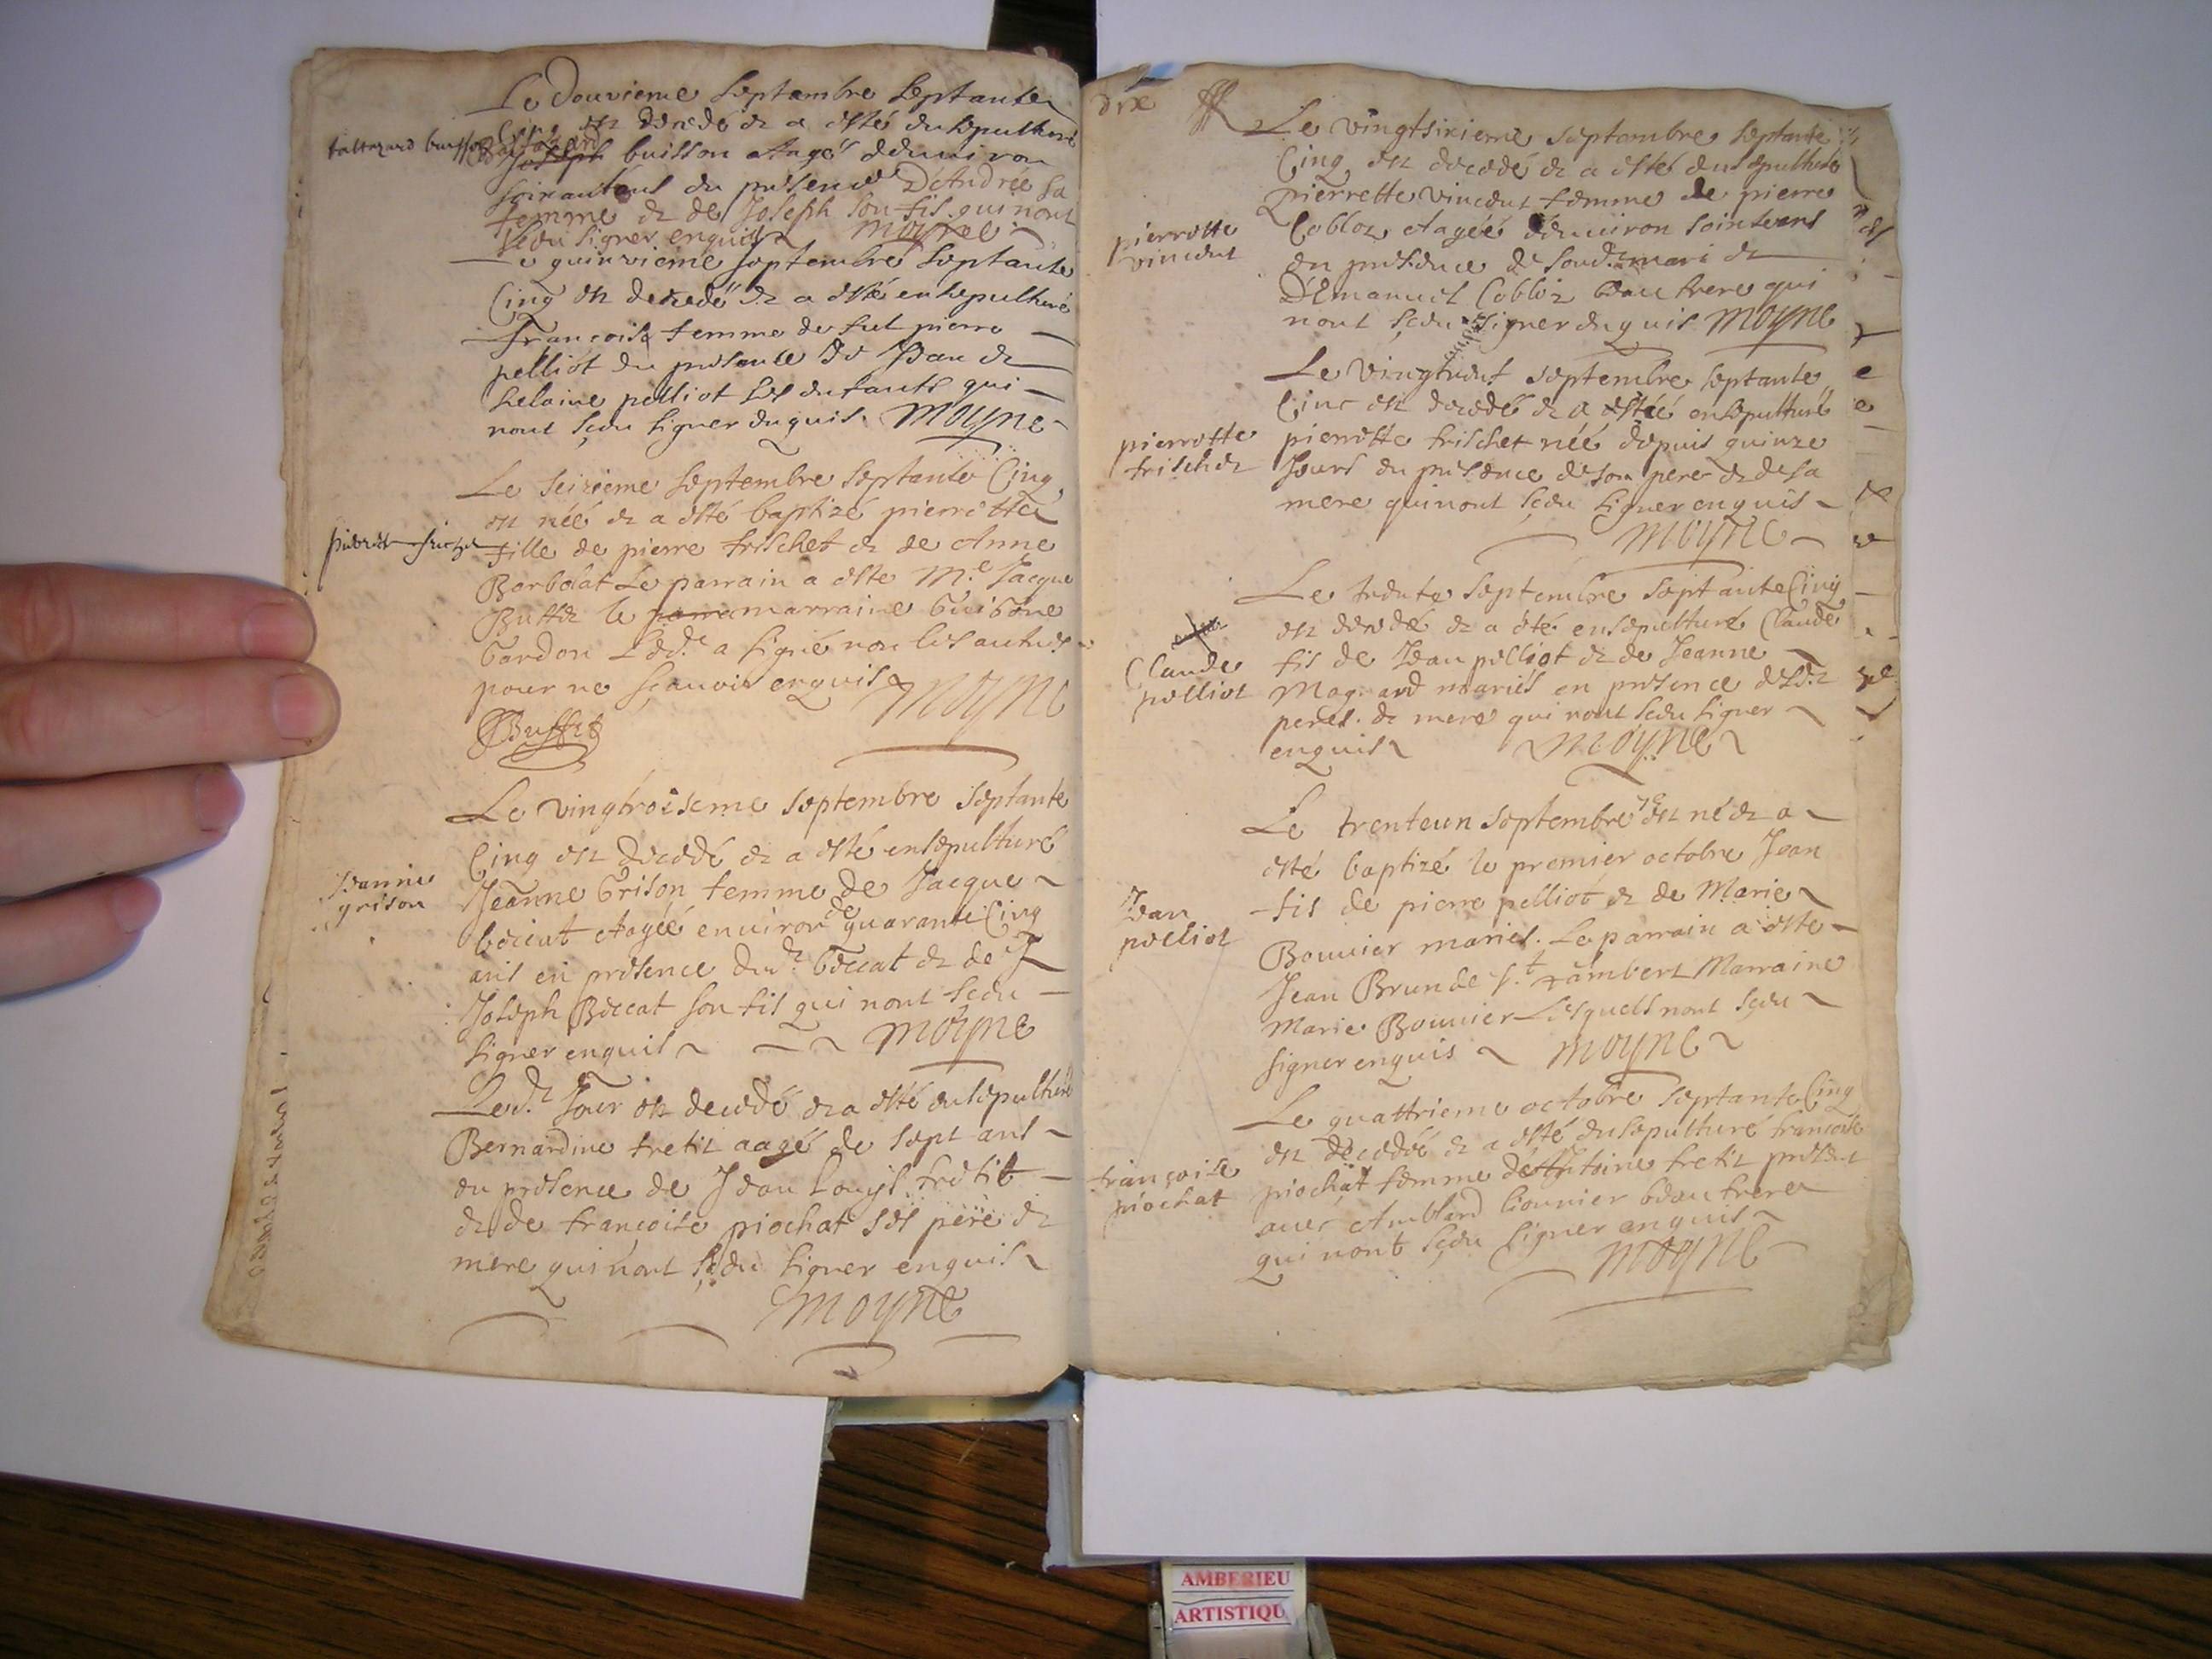 Le douvieme septambre septante
Cinq est decedé et a esté ensepulturé
baltazard buisson
Baltazard
Joseph buisson aagé denuiron
soixantans en presence D'Andrée sa
femme et de Joseph son fis qui nont
sçeu signer enquis moyne
Le quinzieme septembre septante
Cinq est decedé et a esté ensepulturé
francoise femme de fut pierre
pelliot en presence de Jean et
helaine pelliot ses enfants qui
nont sçeu signer enquis. moyne
Le seizieme septembre septante Cinq
est néé et a esté baptizé pierrette
fille de pierre frischet et de Anne
Borbolat Le parrain a este M.e Jacque
Buffet le parra marraine Guigone
Gardon Led.t a signé non les autres
pour ne sçauoir enquis moyne
Buffet
Le vingtroisieme septembre septante
Cinq est decedé et a esté ensepulturé
Jeanne
grison
Jeanne Grison femme de Jacque
boccat aagéé enuiron de quarante Cinq
ans en presence dud.t boccat et de
Joseph Boccat son fis qui nont sçeu
signer enquis moyne
Led.t Jour est decedé et a esté ensepulturé
Bernardine fretit aagé de sept ans
en presence de Jean Louys fretit
et de françoise piochat ses pere et
mere qui nont sçeu signer enquis
moyne
dix
Le vingtsixieme septembre septante
Cinq est decedé et a esté ensepulturé
pierrette vincent femme de pierre
pierrette
vincent
Cobloz aagéé denuiron soixteans
en presence de soud.t mari et
D'Emanuel Cobloz beaufrere qui
nont sçeu signer enquis moyne
Le vingtneuf septembre septante
Cinc est decedé et a estéé ensepulturé
pierrette
frischet
pierrette frischet néé depuis quinze
Jours en presence de son pere et de sa
mere qui nont sçeu signer enquis
moyne
Le trente septembre septante Cinq
est decedé et a été ensepulturé Claude
Claude
pelliot
fis de Jean pelliot et de Jeanne
Magnard mariés en presence desd.t
peres et mere qui nont sçeu signer
enquis moyne
Le trenteun septembre 75 est né et a
esté baptizé le premier octobre Jean
Jean
pelliot
fis de pierre pelliot et de Marie
Bouuier mariés. Le parrain a este
Jean Brun de S.t rambert Marraine
Marie Bouuier Lesquels nont sçeu
signer enquis moyne
Le quattrieme octobre septante Cinq
est decedéé et a esté ensepulturé francoise
françoise
piochat
piochat femme d'Anthoine fretit present
auec Amblard lionnier beaufrere
qui nont sçeu signer enquis
moyne
AMBERIEU
ARTISTIQU